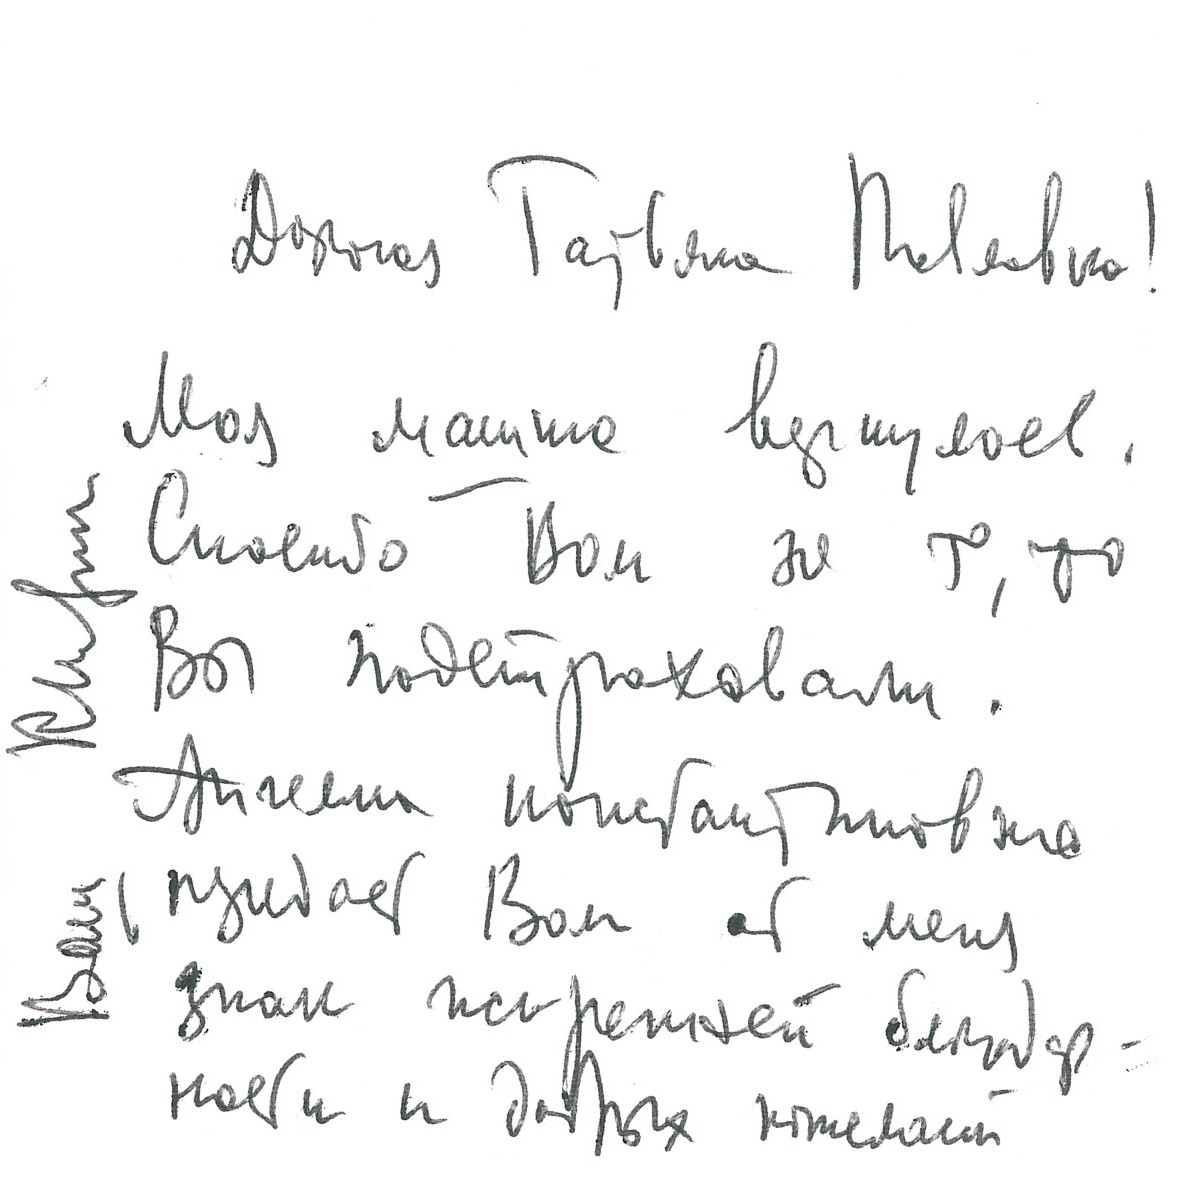 Дорогая Татьяна Павловна!
Моя машина вернулась.
Спасибо Вам за то, что
Вы подстраховали.
Ангелина Константиновна
передает Вам от меня
знак искренней благодар-
ности и добрых пожеланий
Ваш